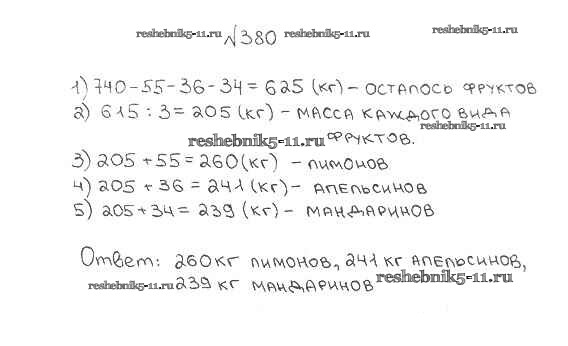 reshebnik5-11.ru №380 reshebnik5-11.ru reshebnik5-11.ru
1) 740-55-36-34=625 (кг) - осталось фруктов
2) 615 : 3 = 205 (кг) - масса каждого вида
reshebnik5-11.ru
reshebnik5-11.ru фруктов.
3) 205 + 55 = 260 (кг) - лимонов
4) 205 + 36 = 241 (кг) - апельсинов
5) 205 + 34 = 239 (кг) - мандаринов
Ответ: 260 кг лимонов, 241 кг апельсинов,
reshebnik5-11.ru 239 кг мандаринов reshebnik5-11.ru